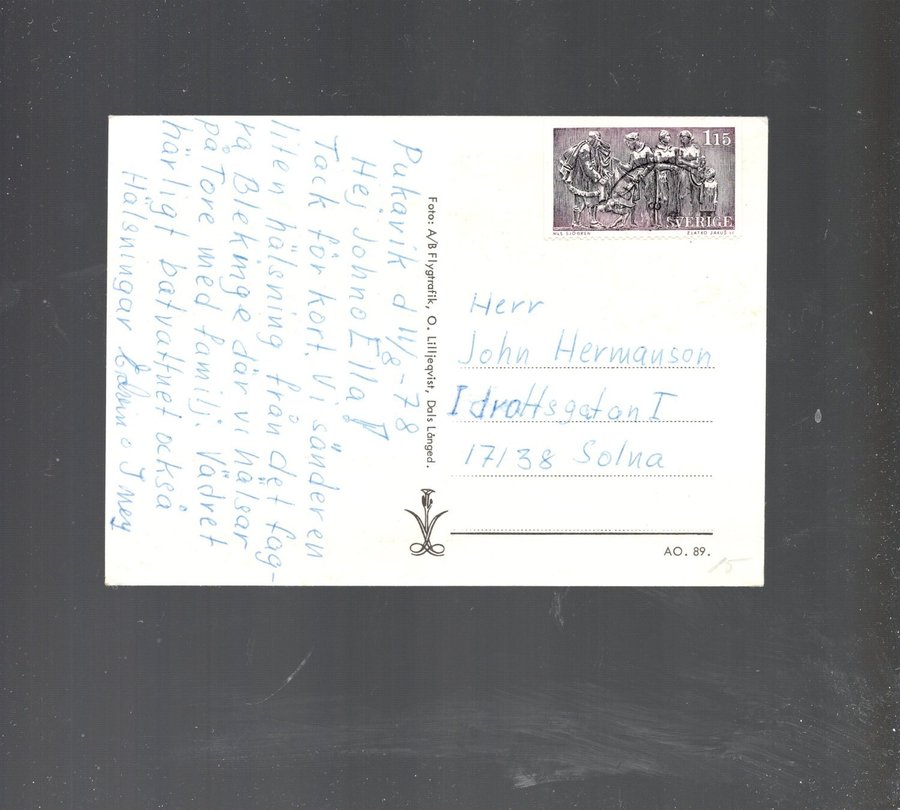 Pukavik d 11/8-78
Hej John o Ella!
Tack för kort. Vi sänder en
liten hälsning från det fag-
ra Blekinge där vi hälsar
på Tore med familj. Vädret
härligt batvattnet också
Hälsningar Edvin o Inez
Foto: A/B Flygtrafik, O. Lilljeqvist, Dals Långed.
1 15
SVERIGE
NILS SJÖGREN
ZLATKO JAKUŠ SC
Herr
John Hermanson
Idrottsgatan I
17138 Solna
AO. 89.
15